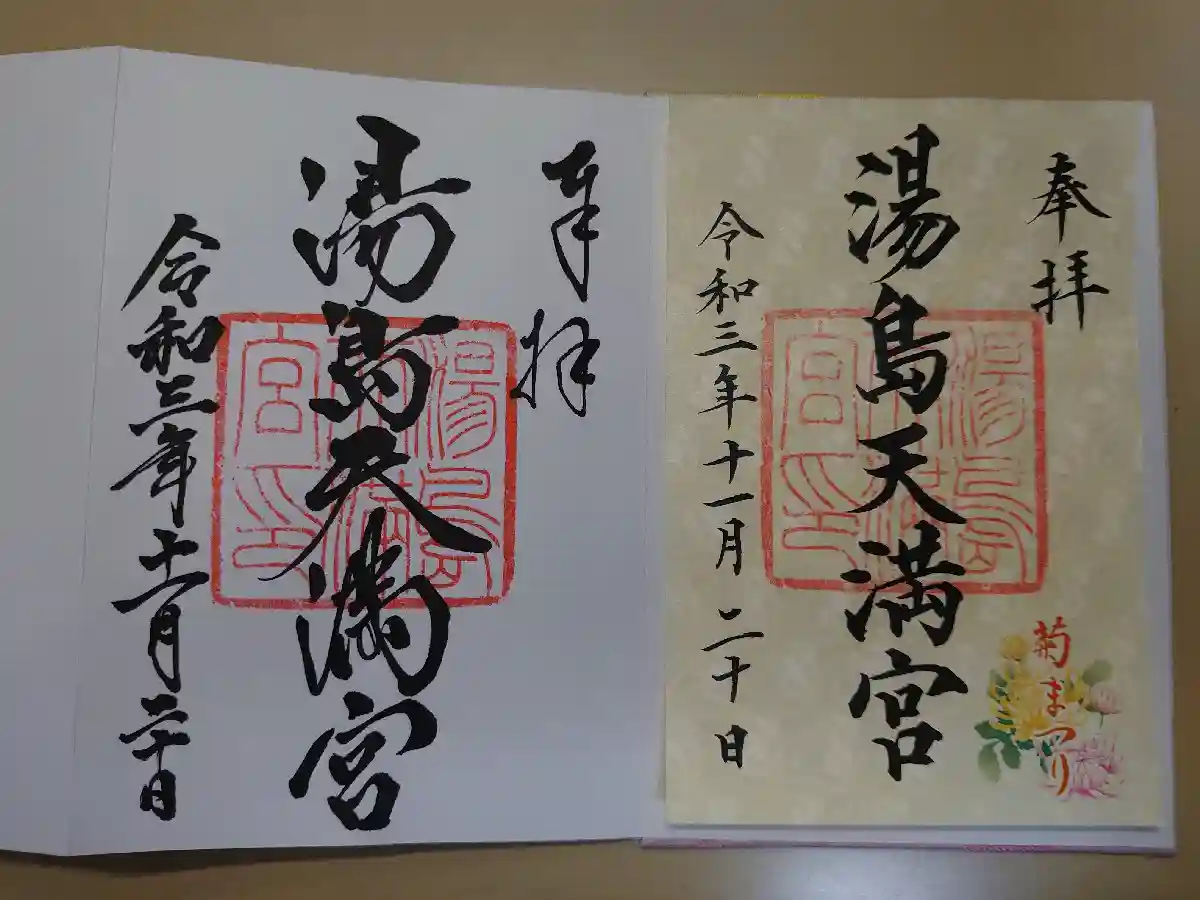 奉拝
湯島天満宮
令和三年十一月二十日
菊まつり
湯島天満宮印
奉拝
湯島天満宮
令和三年十一月二十日
湯島天満宮印